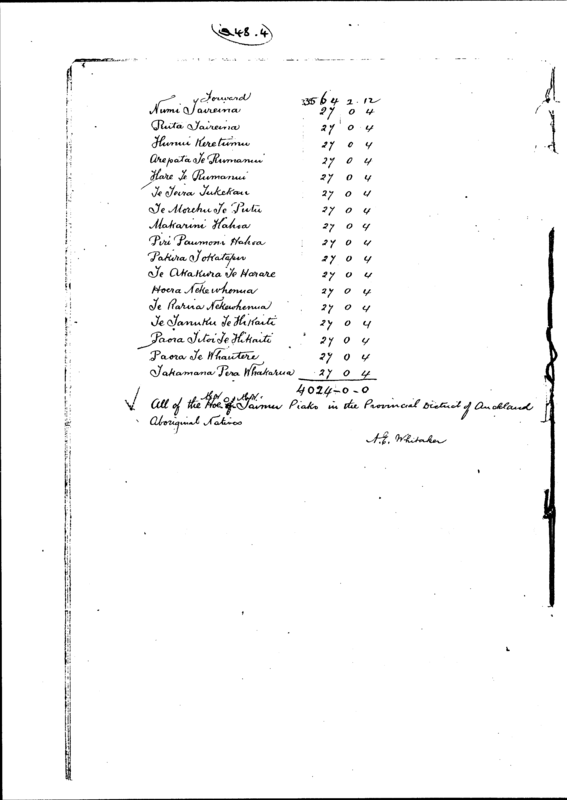 248.4
Forward 3564 2.12
Numi Taireina 27 0 4
Ruta Taireina 27 0 4
Hunui Keretumu 27 0 4
Arepata Te Rumanui 27 0 4
Hare Te Rumanui 27 0 4
Te Teira Tukekau 27 0 4
Te Morehu Te Putu 27 0 4
Makarini Hahsa 27 0 4
Piri Paumoni Hahsa 27 0 4
Pakira Tokatapu 27 0 4
Te Akakura Te Horare 27 0 4
Hoera Nekewhenua 27 0 4
Te Rarua Nekewhenua 27 0 4
Te Tanuku Te Hikaiti 27 0 4
Paora Titoi Te Hikaiti 27 0 4
Paora Te Whautere 27 0 4
Takamana Pera Whakarua 27 0 4
4024-0-0
All of the of Piako in the Provincial District of Auckland
Aboriginal Natives
A.E. Whitaker